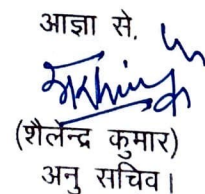 आज्ञा से,
(शैलेन्द्र कुमार)
अनु सचिव।